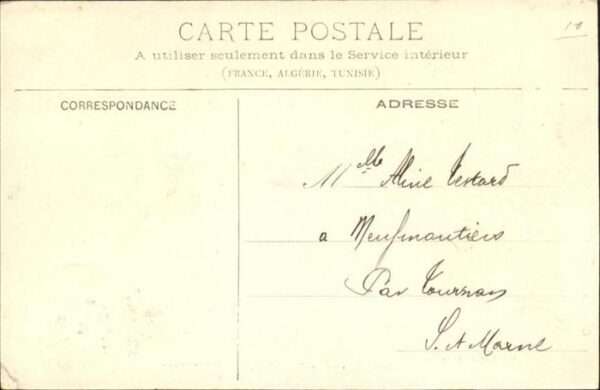 CARTE POSTALE
A utiliser seulement dans le Service intérieur
(FRANCE, ALGÉRIE, TUNISIE)
CORRESPONDANCE
ADRESSE
Mlle Aline Testard
a Neufmoutiers
Par Tournan
S. et Marne